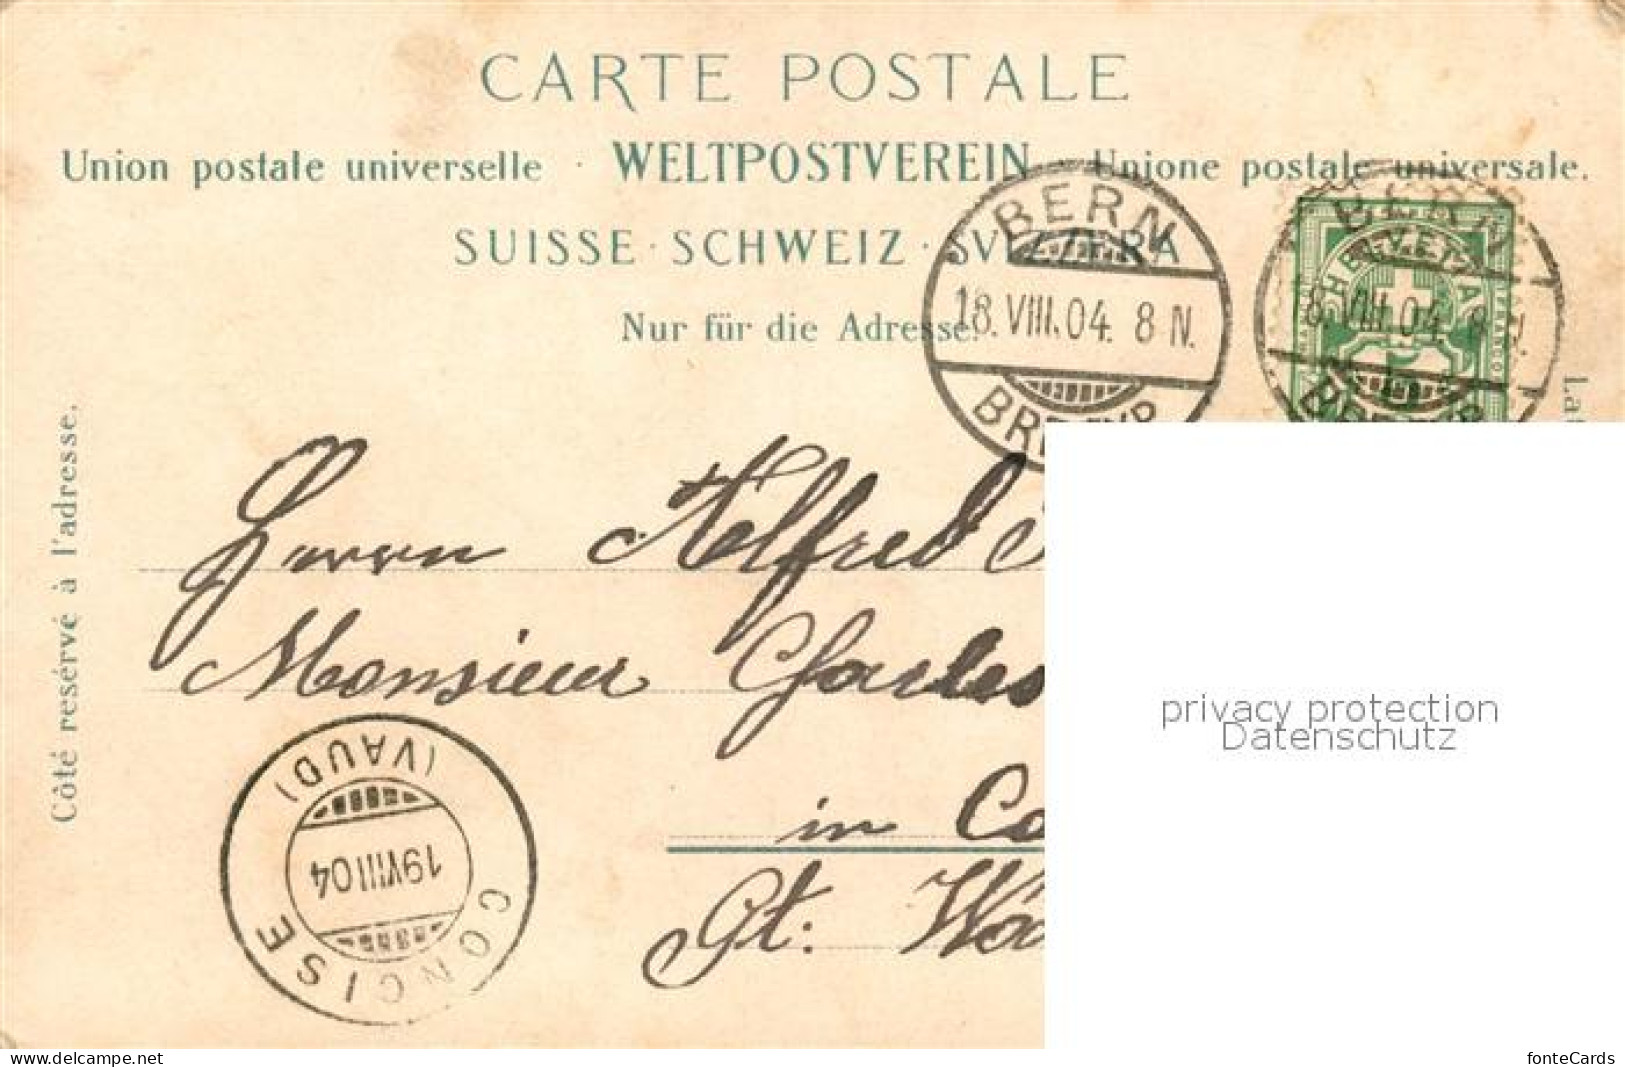 CARTE POSTALE
Union postale universelle · WELTPOSTVEREIN · Unione postale universale.
SUISSE · SCHWEIZ · SVIZZERA
Nur für die Adresse.
Côté resérvé à l'adresse.
La
BERN
18.VIII.04. 8 N.
BERN
18.VIII.04. 8 N.
HELVETIA
FRANCO
Herrn Alfred
Monsieur Charles
in Co
Ct. Wa
CONCISE
19 VIII 04
(VAUD)
privacy protection
Datenschutz
www.delcampe.net
fonteCards